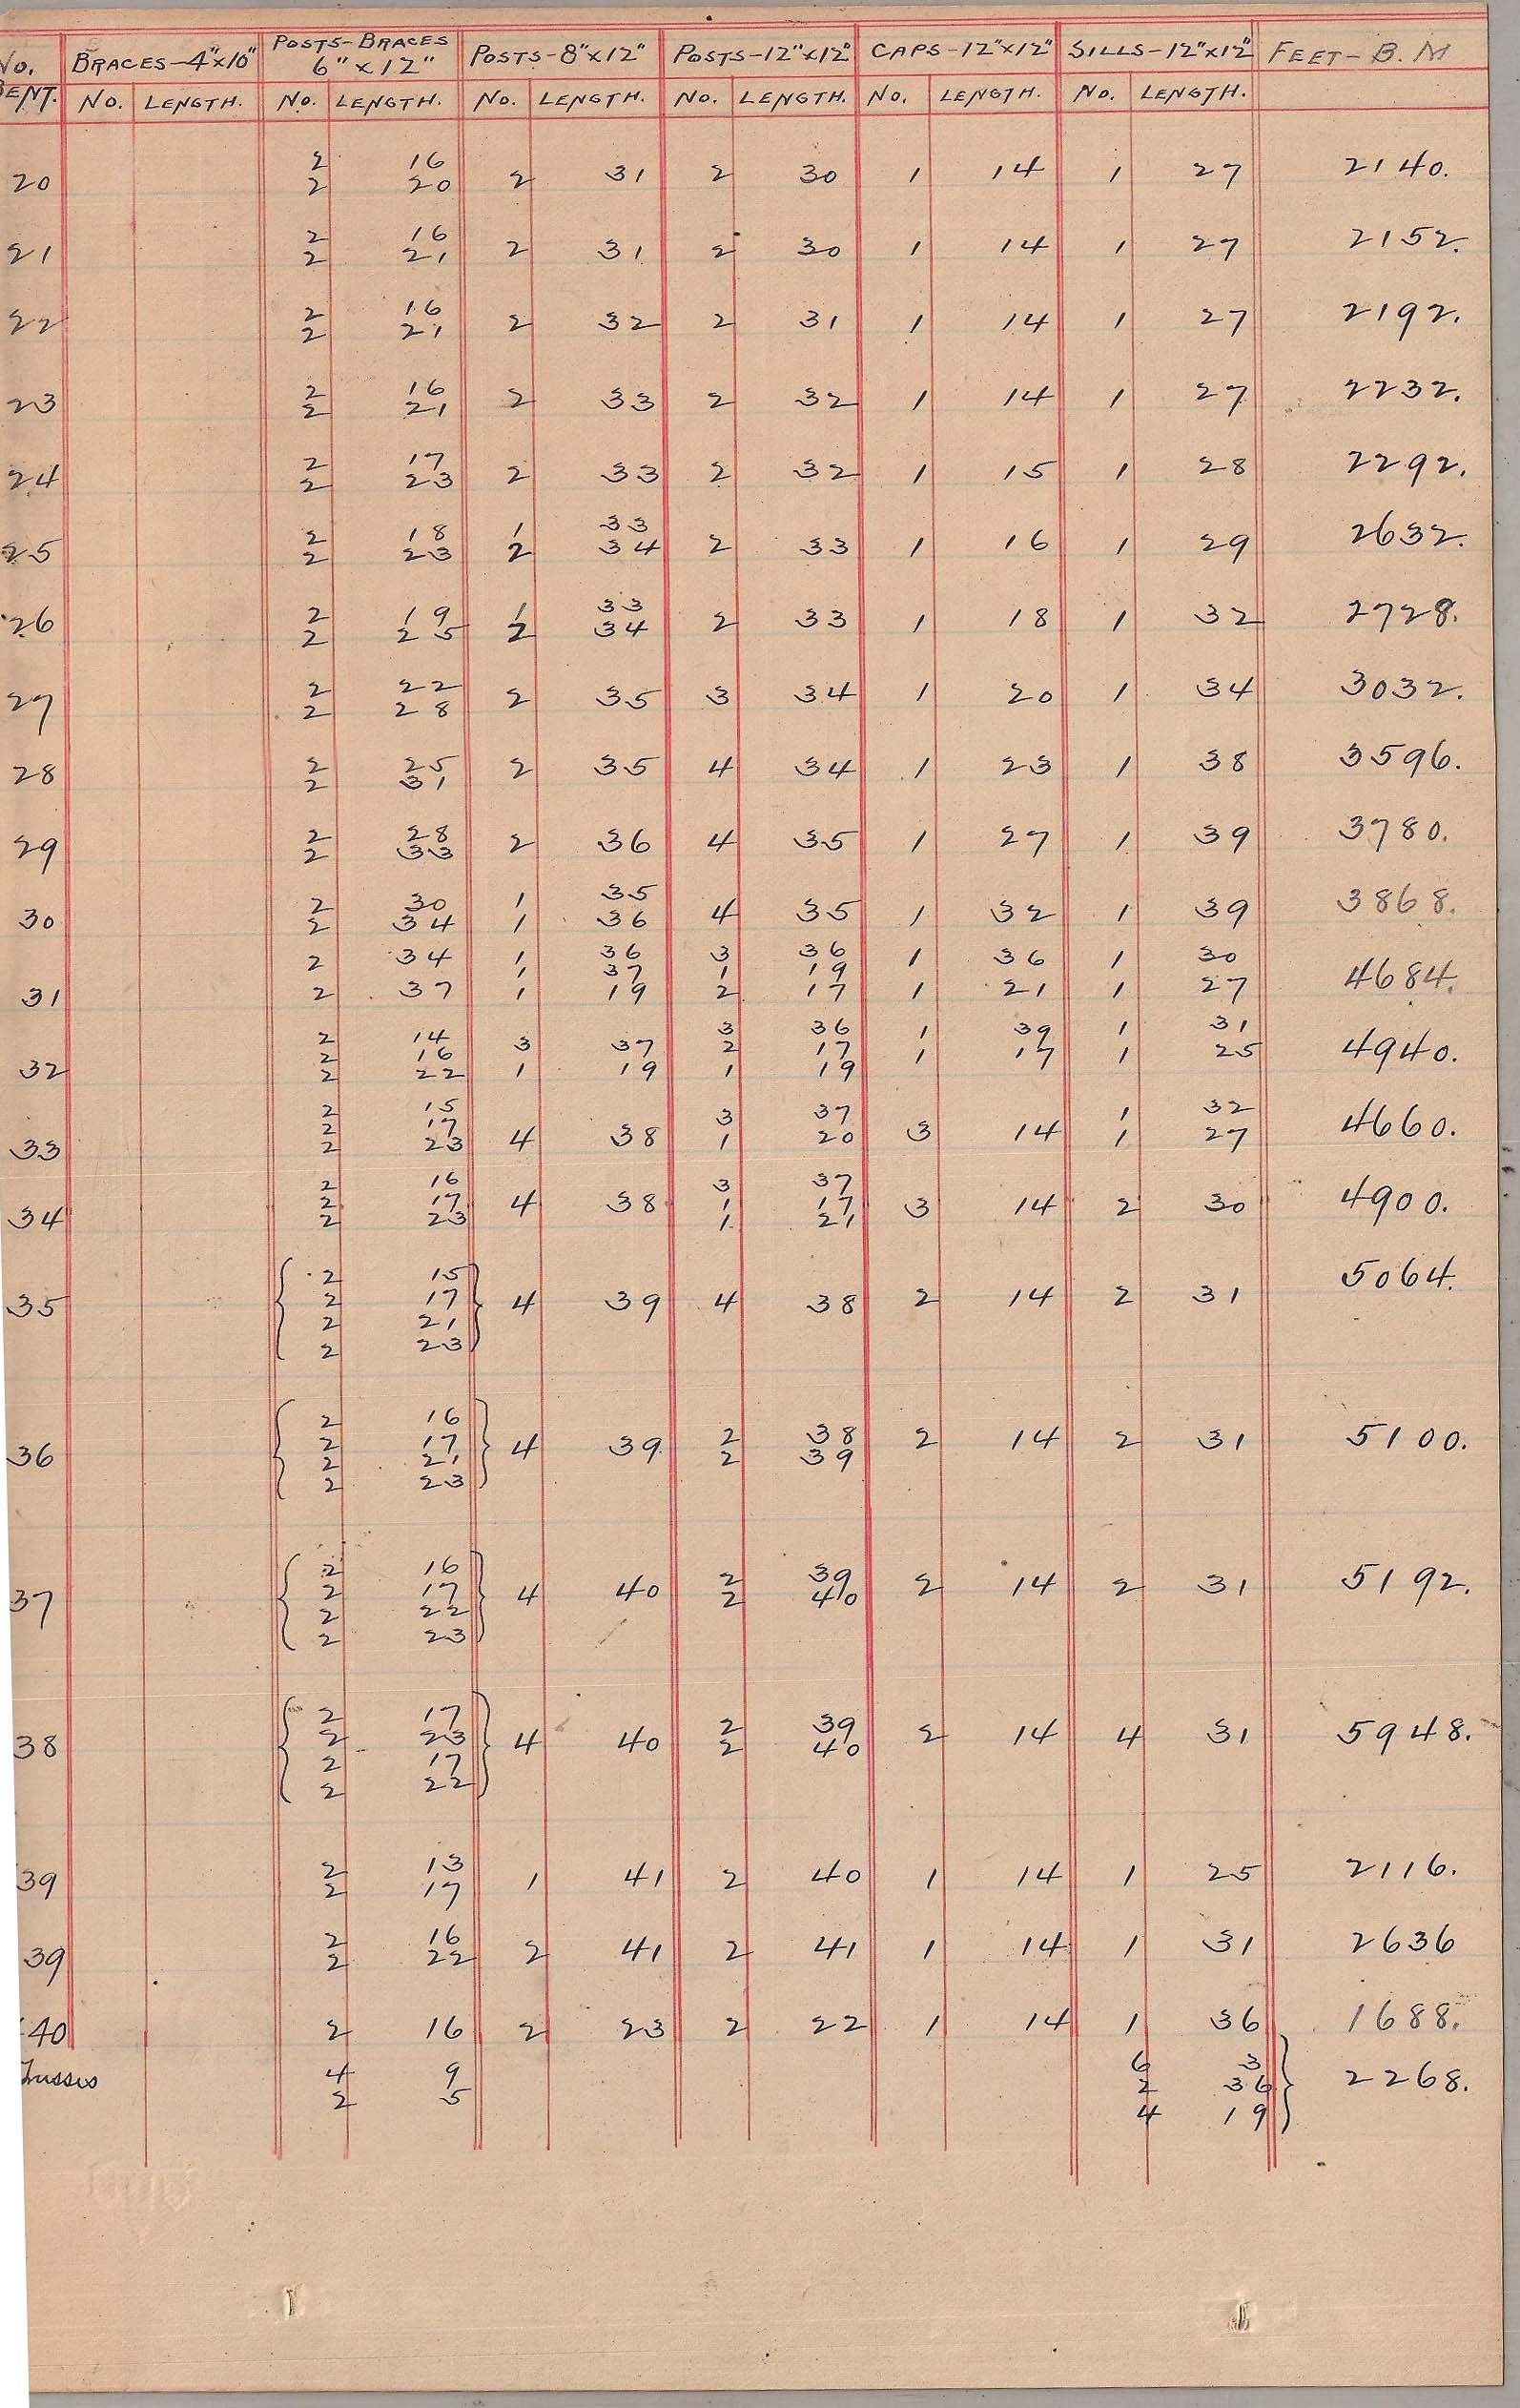 No. BRACES-4"x10" POSTS-BRACES 6"x12" POSTS-8"x12" POSTS-12"x12" CAPS-12"x12" SILLS-12"x12" FEET-B.M
BENT. No. LENGTH. No. LENGTH. No. LENGTH. No. LENGTH. No. LENGTH. No. LENGTH.
2 16
20 2 20 2 31 2 30 1 14 1 27 2140.
2 16
21 2 21 2 31 2 30 1 14 1 27 2152.
2 16
22 2 21 2 32 2 31 1 14 1 27 2192.
2 16
23 2 21 2 33 2 32 1 14 1 27 2232.
2 17
24 2 23 2 33 2 32 1 15 1 28 2292.
2 18 1 33
25 2 23 2 34 2 33 1 16 1 29 2632.
2 19 1 33
26 2 25 2 34 2 33 1 18 1 32 2728.
2 22
27 2 28 2 35 3 34 1 20 1 34 3032.
2 25
28 2 31 2 35 4 34 1 23 1 38 3596.
2 28
29 2 33 2 36 4 35 1 27 1 39 3780.
2 30 1 35
30 2 34 1 36 4 35 1 32 1 39 3868.
2 34 1 36 3 36 1 36 1 30
1 37 1 19
31 2 37 1 19 2 17 1 21 1 27 4684.
2 14 3 37 3 36 1 39 1 31
2 16 2 17 1 17 1 25 4940.
32 2 22 1 19 1 19
2 15 3 37 1 32
2 17
33 2 23 4 38 1 20 3 14 1 27 4660.
2 16 3 37
2 17 4 38 1 17 3 14 2 30 4900.
34 2 23 1 21
2 15 5064.
35 2 17 4 39 4 38 2 14 2 31
2 21
2 23
2 16
2 17 4 39 2 38 2 14 2 31 5100.
36 2 21 2 39
2 23
2 16
37 2 17 4 40 2 39 2 14 2 31 5192.
2 22 2 40
2 23
2 17
38 2 23 4 40 2 39 2 14 4 31 5948.
2 17 2 40
2 22
2 13
39 2 17 1 41 2 40 1 14 1 25 2116.
2 16
39 2 22 2 41 2 41 1 14 1 31 2636
40 2 16 2 23 2 22 1 14 1 36 1688.
4 9 6 3
2 5 2 36 2268.
4 19